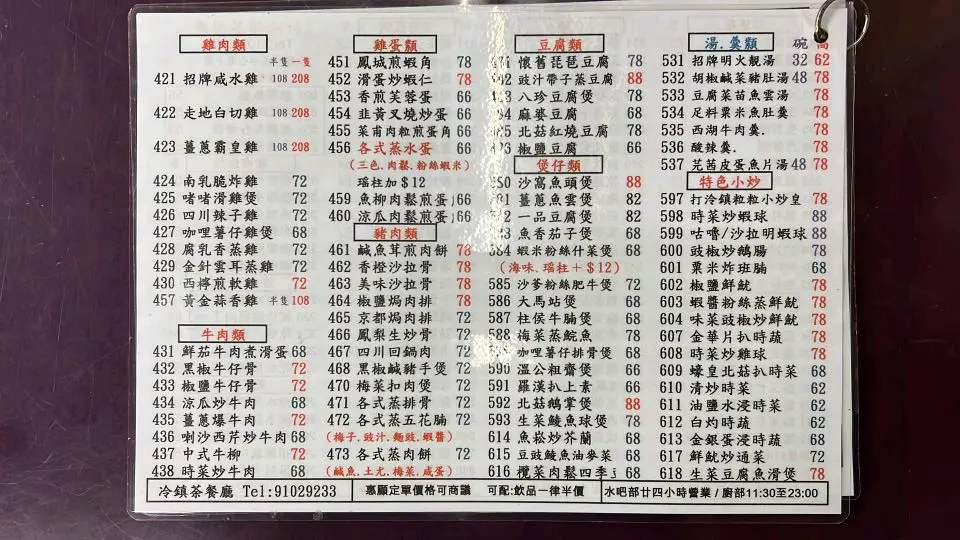 雞肉類
半隻 一隻
421 招牌咸水雞 108 208
422 走地白切雞 108 208
423 薑蔥霸皇雞 108 208
424 南乳脆炸雞 72
425 啫啫滑雞煲 72
426 四川辣子雞 72
427 咖喱薯仔雞煲 68
428 腐乳香蒸雞 72
429 金針雲耳蒸雞 72
430 西檸煎軟雞 72
457 黃金蒜香雞 半隻 108
牛肉類
431 鮮茄牛肉煮滑蛋 68
432 黑椒牛仔骨 72
433 椒鹽牛仔骨 72
434 涼瓜炒牛肉 68
435 薑蔥爆牛肉 72
436 喇沙西芹炒牛肉 68
437 中式牛柳 72
438 時菜炒牛肉 68
雞蛋類
451 鳳城煎蝦角 78
452 滑蛋炒蝦仁 78
453 香煎芙蓉蛋 66
454 韭黃叉燒炒蛋 66
455 菜甫肉粒煎蛋角 66
456 各式蒸水蛋 66
(三色.肉鬆.粉絲蝦米)
瑤柱加$12
459 魚柳肉鬆煎蛋 66
460 涼瓜肉鬆煎蛋 66
豬肉類
461 鹹魚茸煎肉餅 78
462 香橙沙拉骨 78
463 美味沙拉骨 78
464 椒鹽焗肉排 78
465 京都焗肉排 72
466 鳳梨生炒骨 72
467 四川回鍋肉 72
468 黑椒鹹豬手煲 72
470 梅菜扣肉煲 72
471 各式蒸排骨 72
472 各式蒸五花腩 72
(梅子.豉汁.麵豉.蝦醬)
473 各式蒸肉餅 72
(鹹魚.土尤.梅菜.咸蛋)
豆腐類
懷舊琵琶豆腐 78
豉汁帶子蒸豆腐 88
八珍豆腐煲 78
麻婆豆腐 68
北菇紅燒豆腐 68
椒鹽豆腐 66
煲仔類
沙窩魚頭煲 88
薑蔥魚雲煲 82
一品豆腐煲 82
魚香茄子煲 68
584 蝦米粉絲什菜煲 68
(海味.瑤柱+$12)
585 沙爹粉絲肥牛煲 72
586 大馬站煲 68
587 柱侯牛腩煲 68
588 梅菜蒸鯇魚 78
589 咖喱薯仔排骨煲 68
590 溫公粗齋煲 66
591 羅漢扒上素 66
592 北菇鵝掌煲 88
593 生菜鯪魚球煲 78
614 魚崧炒芥蘭 68
615 豆豉鯪魚油麥菜 68
616 欖菜肉鬆四季 68
湯.羹類 碗 窩
531 招牌明火靚湯 32 62
532 胡椒鹹菜豬肚湯 48 78
533 豆腐菜苗魚雲湯 78
534 足料粟米魚肚羹 78
535 西湖牛肉羹. 78
536 酸辣羹. 78
537 芫茜皮蛋魚片湯 48 78
特色小炒
597 打冷鎮粒粒小炒皇 78
598 時菜炒蝦球 88
599 咕嚕/沙拉明蝦球 88
600 豉椒炒鵝腸 78
601 粟米炸班腩 68
602 椒鹽鮮魷 78
603 蝦醬粉絲蒸鮮魷 78
604 味菜豉椒炒鮮魷 78
607 金華片扒時蔬 78
608 時菜炒雞球 78
609 蠔皇北菇扒時菜 68
610 清炒時菜 62
611 油鹽水浸時菜 62
612 白灼時蔬 62
613 金銀蛋浸時蔬 68
617 鮮魷炒通菜 72
618 生菜豆腐魚滑煲 78
冷鎮茶餐廳 Tel:91029233 惠顧定單價格可商議 可配:飲品一律半價 水吧部廿四小時營業/廚部11:30至23:00